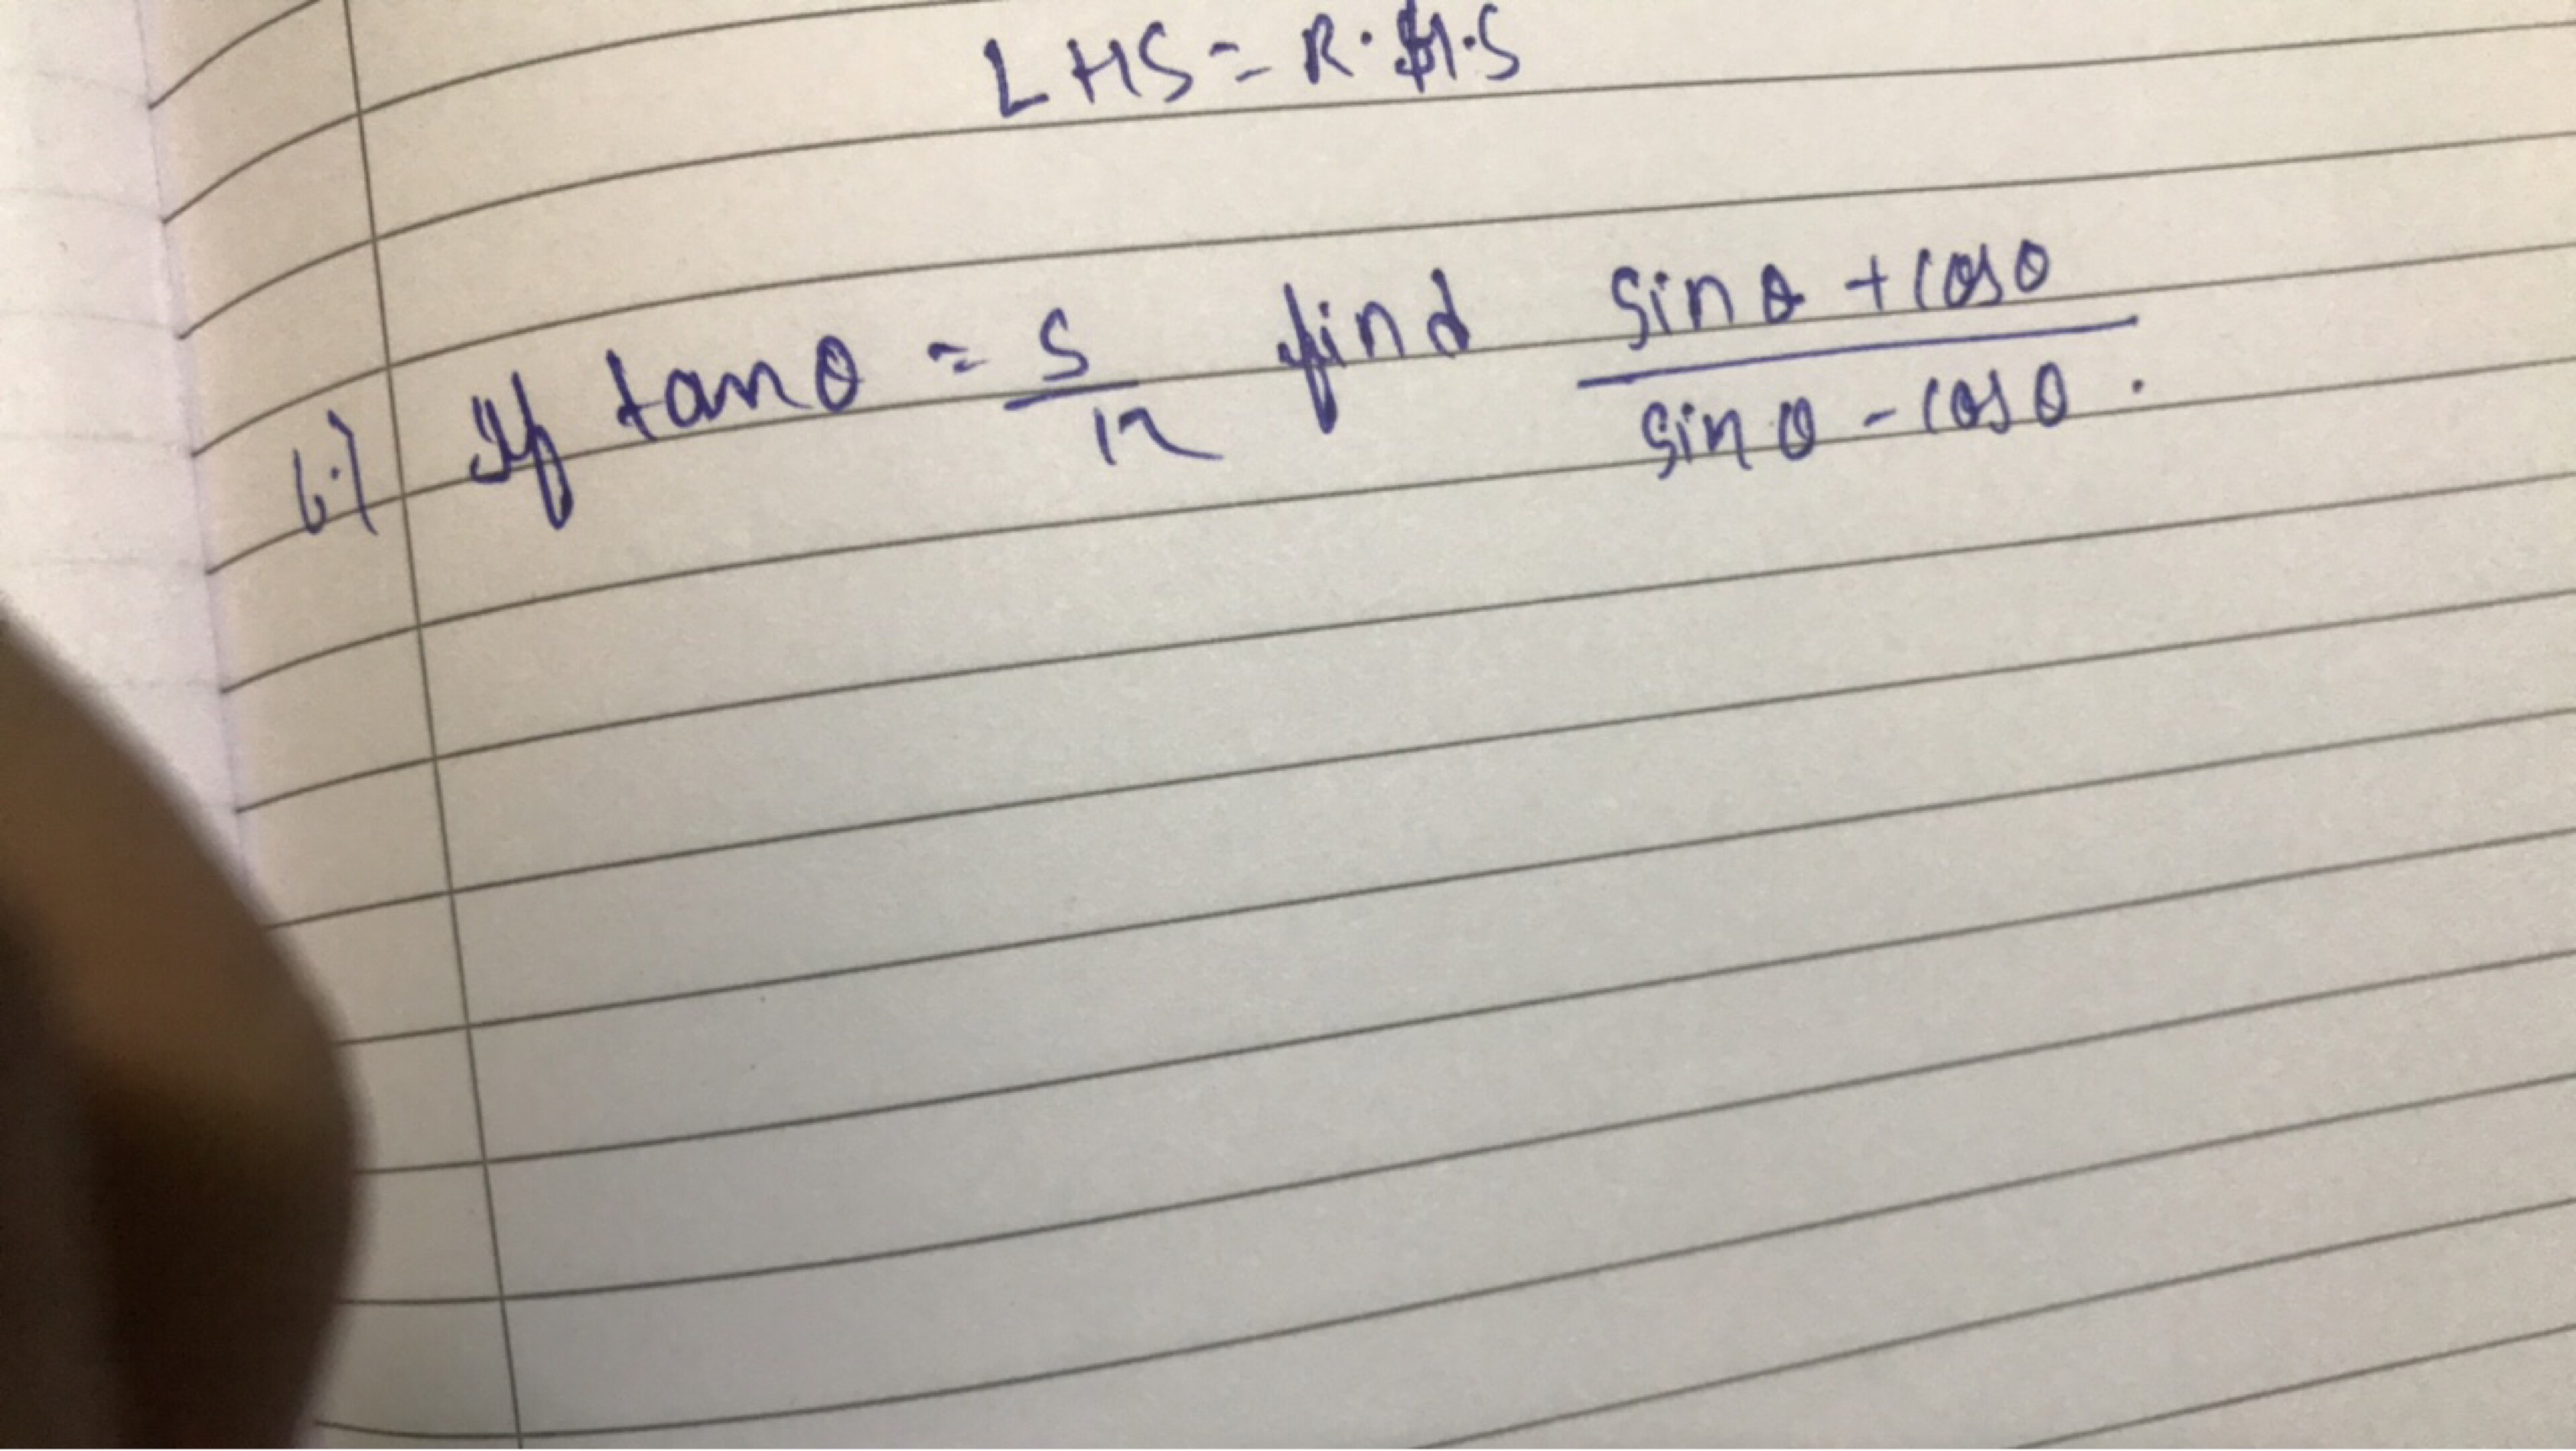 LHS = R.H.S
6.) If tanθ = 5/12 find sinθ + cosθ / sinθ - cosθ.